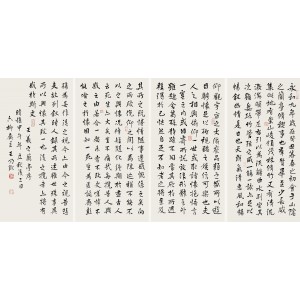 永和九年歲在癸丑暮春之初會于山陰
之蘭亭脩稧事也群賢畢至少長咸
集此地有崇山峻嶺茂林脩竹又有清
流激湍暎帶左右引以為流觴曲水列坐其
次雖無絲竹管弦之盛一觴一詠亦足以
暢敘幽情是日也天朗氣清惠風和暢
仰觀宇宙之大俯察品類之盛所以遊
目騁懷足以極視聽之娛信可樂也夫
人之相與俯仰一世或取諸懷抱悟言
一室之內或因寄所託放浪形骸之外
雖趣舍萬殊靜躁不同當其欣於所遇
暫得於己快然自足不知老之將至及
其所之既惓情隨事遷感慨係之矣向
之所欣俛仰之間以為陳迹猶不能不
以之興懷況脩短隨化終期於盡古人
云死生亦大矣豈不痛哉每攬昔人興感
之由若合一契未嘗不臨文嗟悼不能喻
之於懷固知一死生為虛誕齊彭殤
為妄作後之視今亦由今之視昔悲
夫故列敘時人錄其所述雖世殊事異
所以興懷其致一也後之覽者亦將有
感於斯文 王羲之蘭亭序
時維甲午年